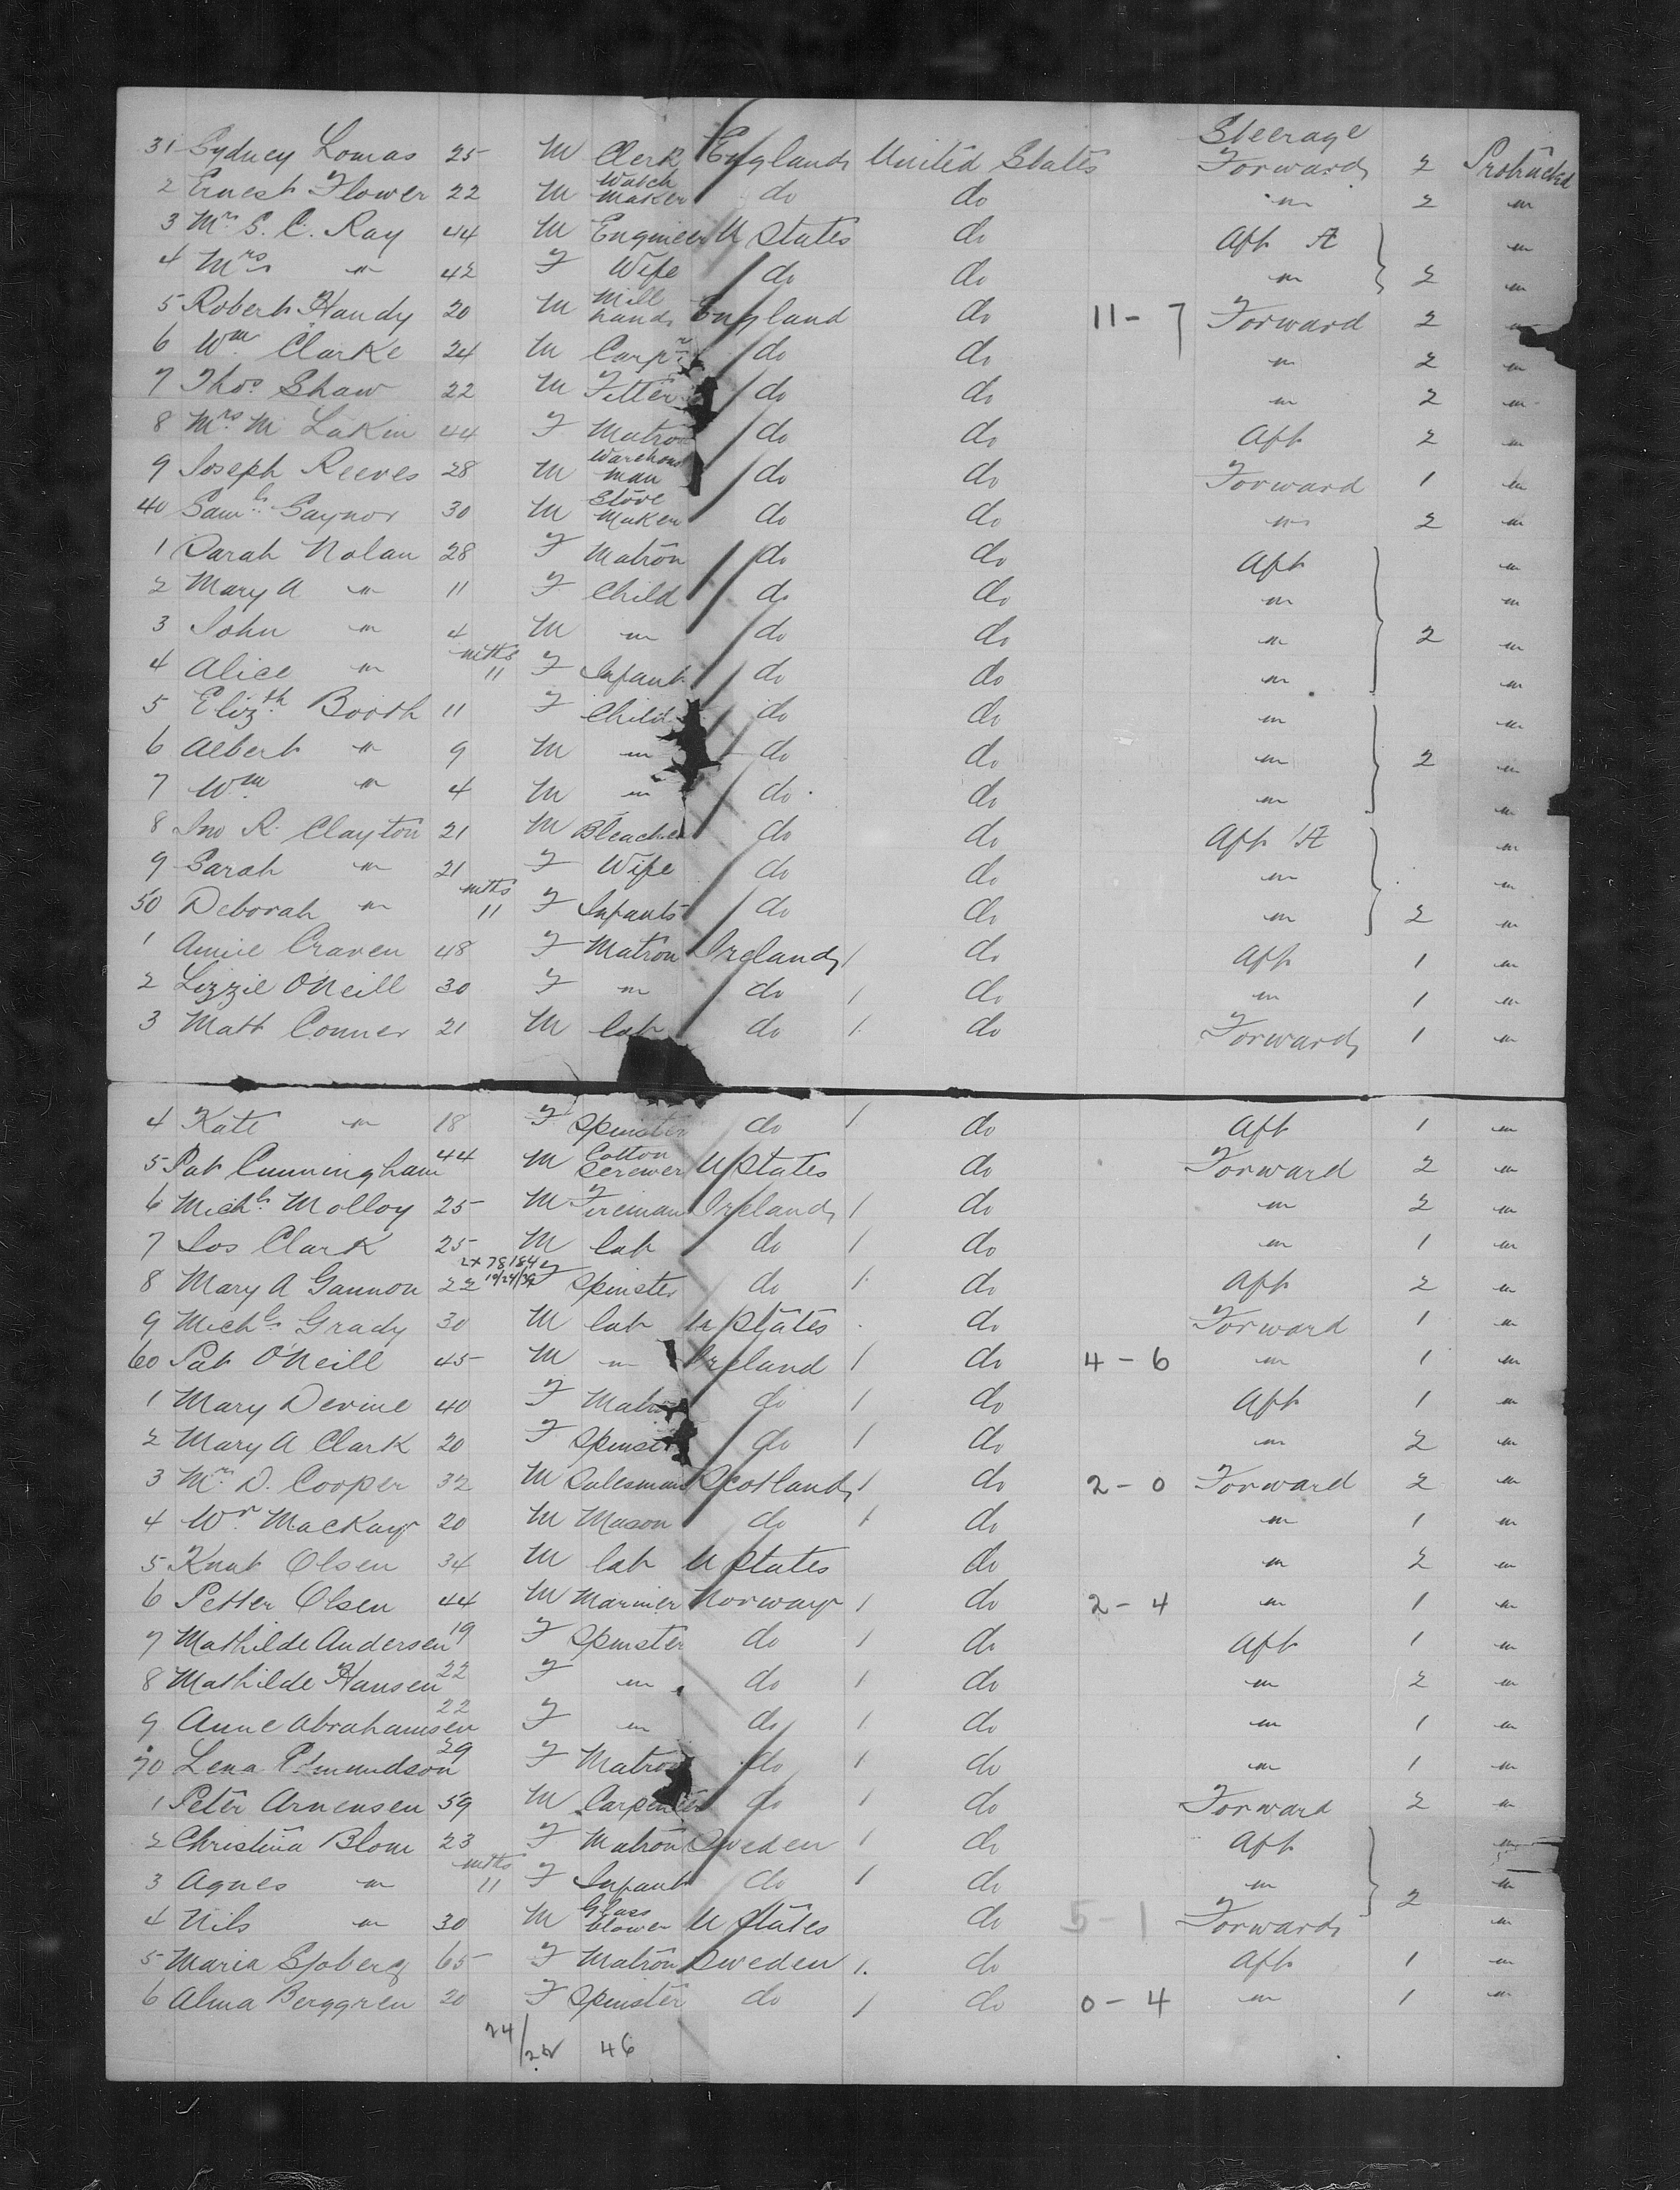 Steerage
31 Sydney Lomas 25 M Clerk England United States Forward 2 Protracted
2 Ernest Flower 22 M Watch Maker do do " 2 "
3 Mr S. C. Ray 44 M Engineer U States do Aft "
4 Mrs " 42 F Wife do do " 2 "
5 Robert Handy 20 M Mill hand England do 11-7 Forward 2 "
6 Wm Clarke 24 M Carpr do do " 2 "
7 Thos Shaw 22 M Fitter do do " 2 "
8 Mrs M Lakin 44 F Matron do do Aft 2 "
9 Joseph Reeves 28 M Warehous man do do Forward 1 "
40 Saml Gaynor 30 M Stove Maker do do " 2 "
1 Sarah Nolan 28 F Matron do do Aft "
2 Mary A " 11 F Child do do " "
3 John " 4 M " do do " 2 "
4 Alice " mths 11 F Infant do do " "
5 Elizth Booth 11 F Child do do " "
6 Albert " 9 M " do do " 2 "
7 Wm " 4 M " do do " "
8 Jno R. Clayton 21 M Bleacher do do Aft "
9 Sarah " 21 F Wife do do " "
50 Deborah " mths 11 F Infant do do " 2 "
1 Annie Craven 48 F Matron Ireland / do Aft 1 "
2 Lizzie O'Neill 30 F " do / do " 1 "
3 Matt Conner 21 M lab do / do Forward 1 "
4 Kate " 18 F Spinster do / do Aft 1 "
5 Pat Cunningham 44 M Cotton Screwer U States do Forward 2 "
6 Michl Molloy 25 M Fireman Ireland / do " 2 "
7 Jos Clark 25 M lab do / do " 1 "
8 Mary A Gannon 22 F Spinster do / do Aft 2 "
9 Michl Grady 30 M lab U States do Forward 1 "
60 Pat O'Neill 45 M " Ireland / do 4-6 " 1 "
1 Mary Devine 40 F Matron do / do Aft 1 "
2 Mary A Clark 20 F Spinst do / do " 2 "
3 Mr D. Cooper 32 M Salesman Scotland / do 2-0 Forward 2 "
4 Wr MacKay 20 M Mason do / do " 1 "
5 Knut Olsen 34 M lab U States do " 2 "
6 Petter Olsen 44 M Mariner Norway / do 2-4 " 1 "
7 Mathilde Andersen 19 F Spinster do / do Aft 1 "
8 Mathilde Hansen 22 F " do / do " 2 "
9 Anne Abrahamsen 22 F " do / do " 1 "
70 Lena 29 F Matron do / do " 1 "
1 Peter Arnensen 59 M Carpenter do / do Forward 2 "
2 Christina Blom 23 F Matron Sweden / do Aft "
3 Agnes " mths 11 F Infant do / do " 2 "
4 Nils " 30 M Glass blower U States do 5-1 Forward "
5 Maria Sjoberg 65 F Matron Sweden / do Aft 1 "
6 Alma Berggren 20 F Spinster do / do 0-4 " 1 "
24/22 46